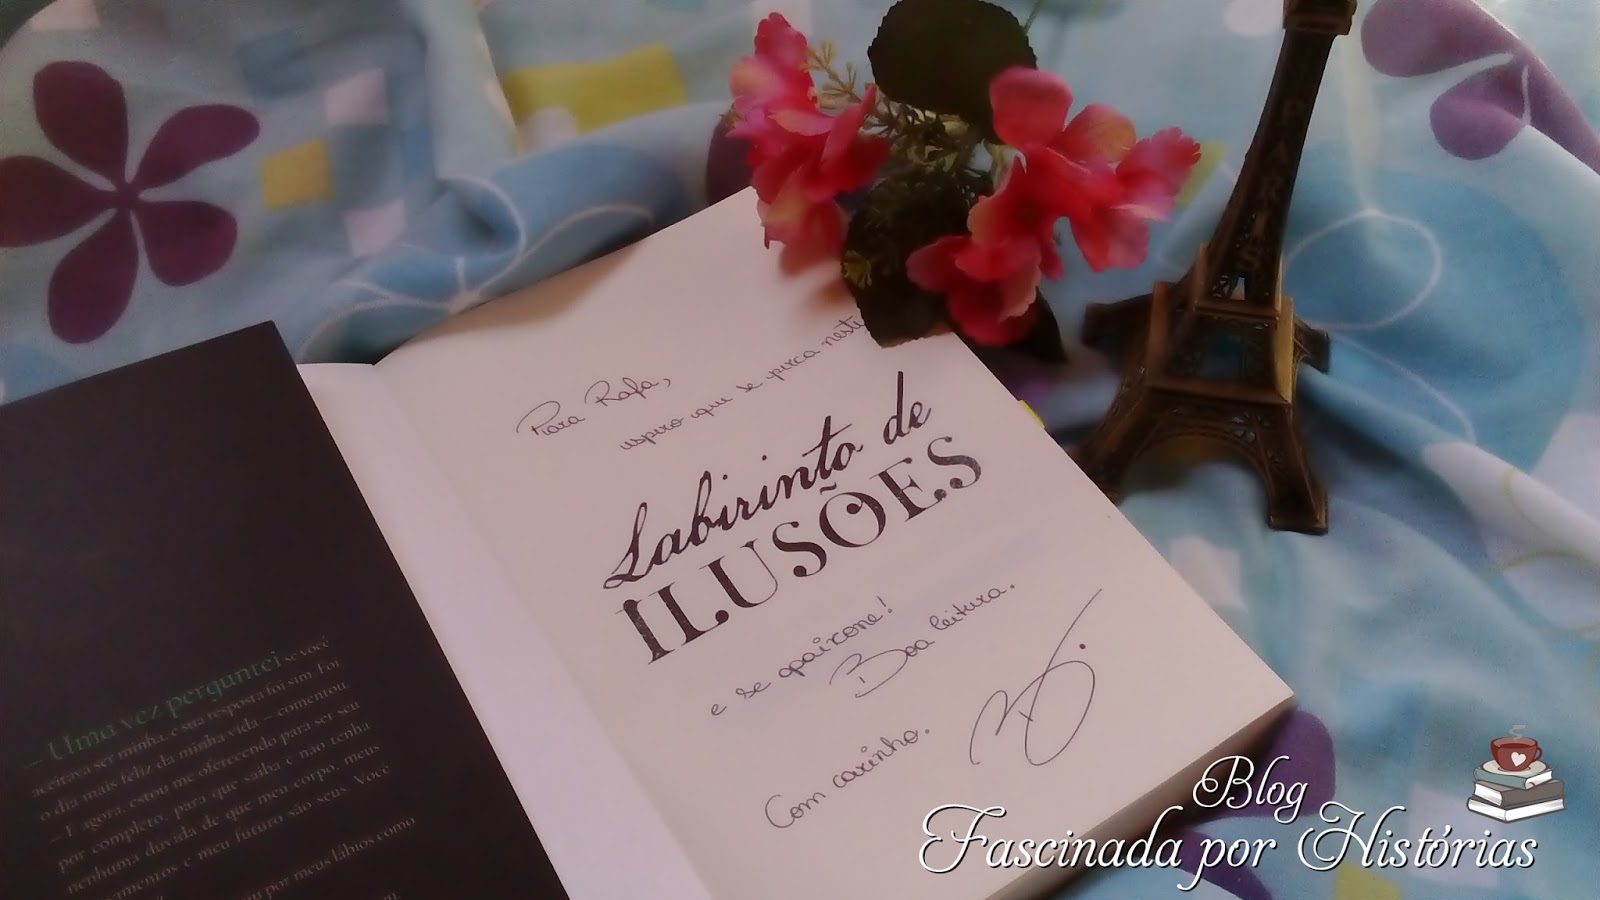 Para Rafa,
espero que se perca neste
Labirinto de
ILUSÕES
e se apaixone!
Boa leitura.
Com carinho.
PARIS
— Uma vez perguntei se você
aceitava ser minha, e sua resposta foi sim. Foi
o dia mais feliz da minha vida – comentou.
– E agora, estou me oferecendo para ser seu
por completo, para que saiba e não tenha
nenhuma dúvida de que meu corpo, meus
amentos e meu futuro são seus. Você
por meus lábios como
Blog
Fascinada por Histórias